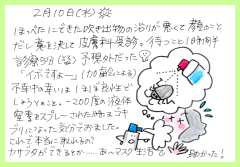 2月10日(水)
ほっぺたにできた吹き出物の治りが悪くて顔のこと
だし意を決して皮膚科受診。待つこと1時間半
診察5分(泣)予想外だった
「イボですよー」(加齢による)
不幸中の幸いは「ほぼ良性で
しょうとのこと。-200度の液体
窒素をスプレーされた時はゴキ
ブリになった気分でました。
これで本当に取れるの?
カサブタができるとか…あ〜マスク生活で
助かった!